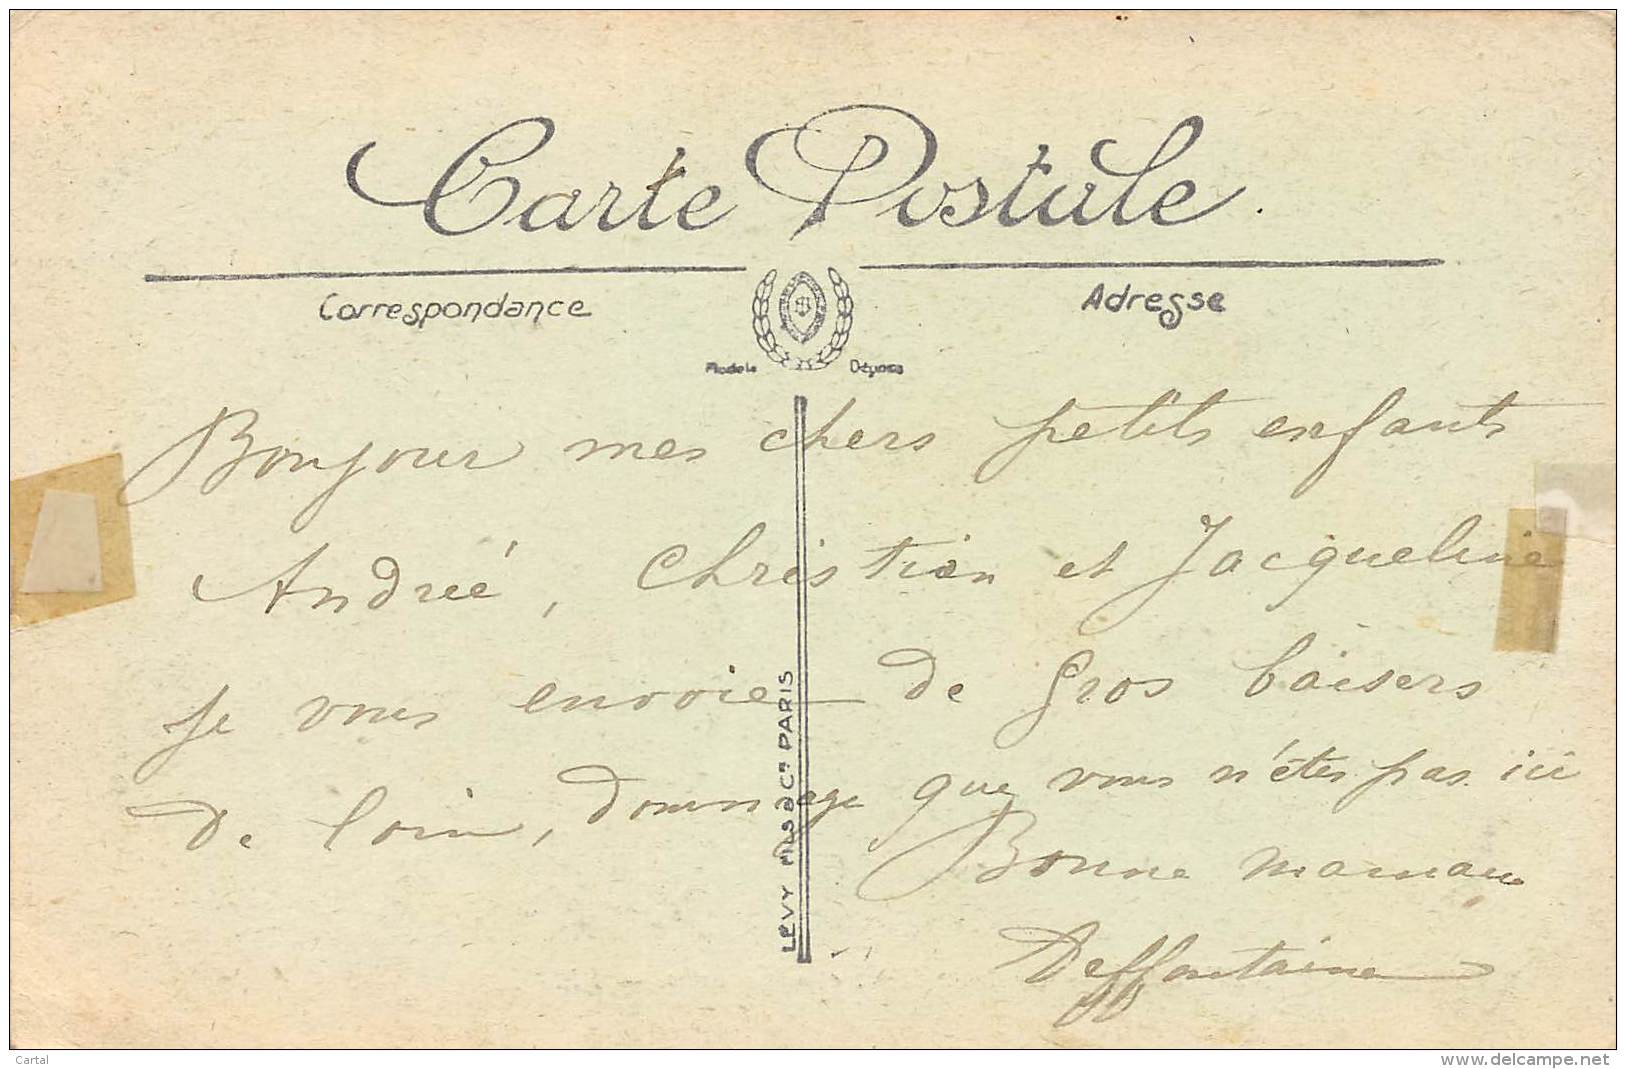 Carte Postale.
Correspondance
Adresse
Modèle Déposé
LÉVY FILS & Cie PARIS
Bonjour mes chers petits enfants
Andrée, Christian et Jacqueline
je vous envoie de gros baisers
de loin, dommage que vous n'êtes pas ici
Bonne maman
Deffontaine
Cartal
www.delcampe.net